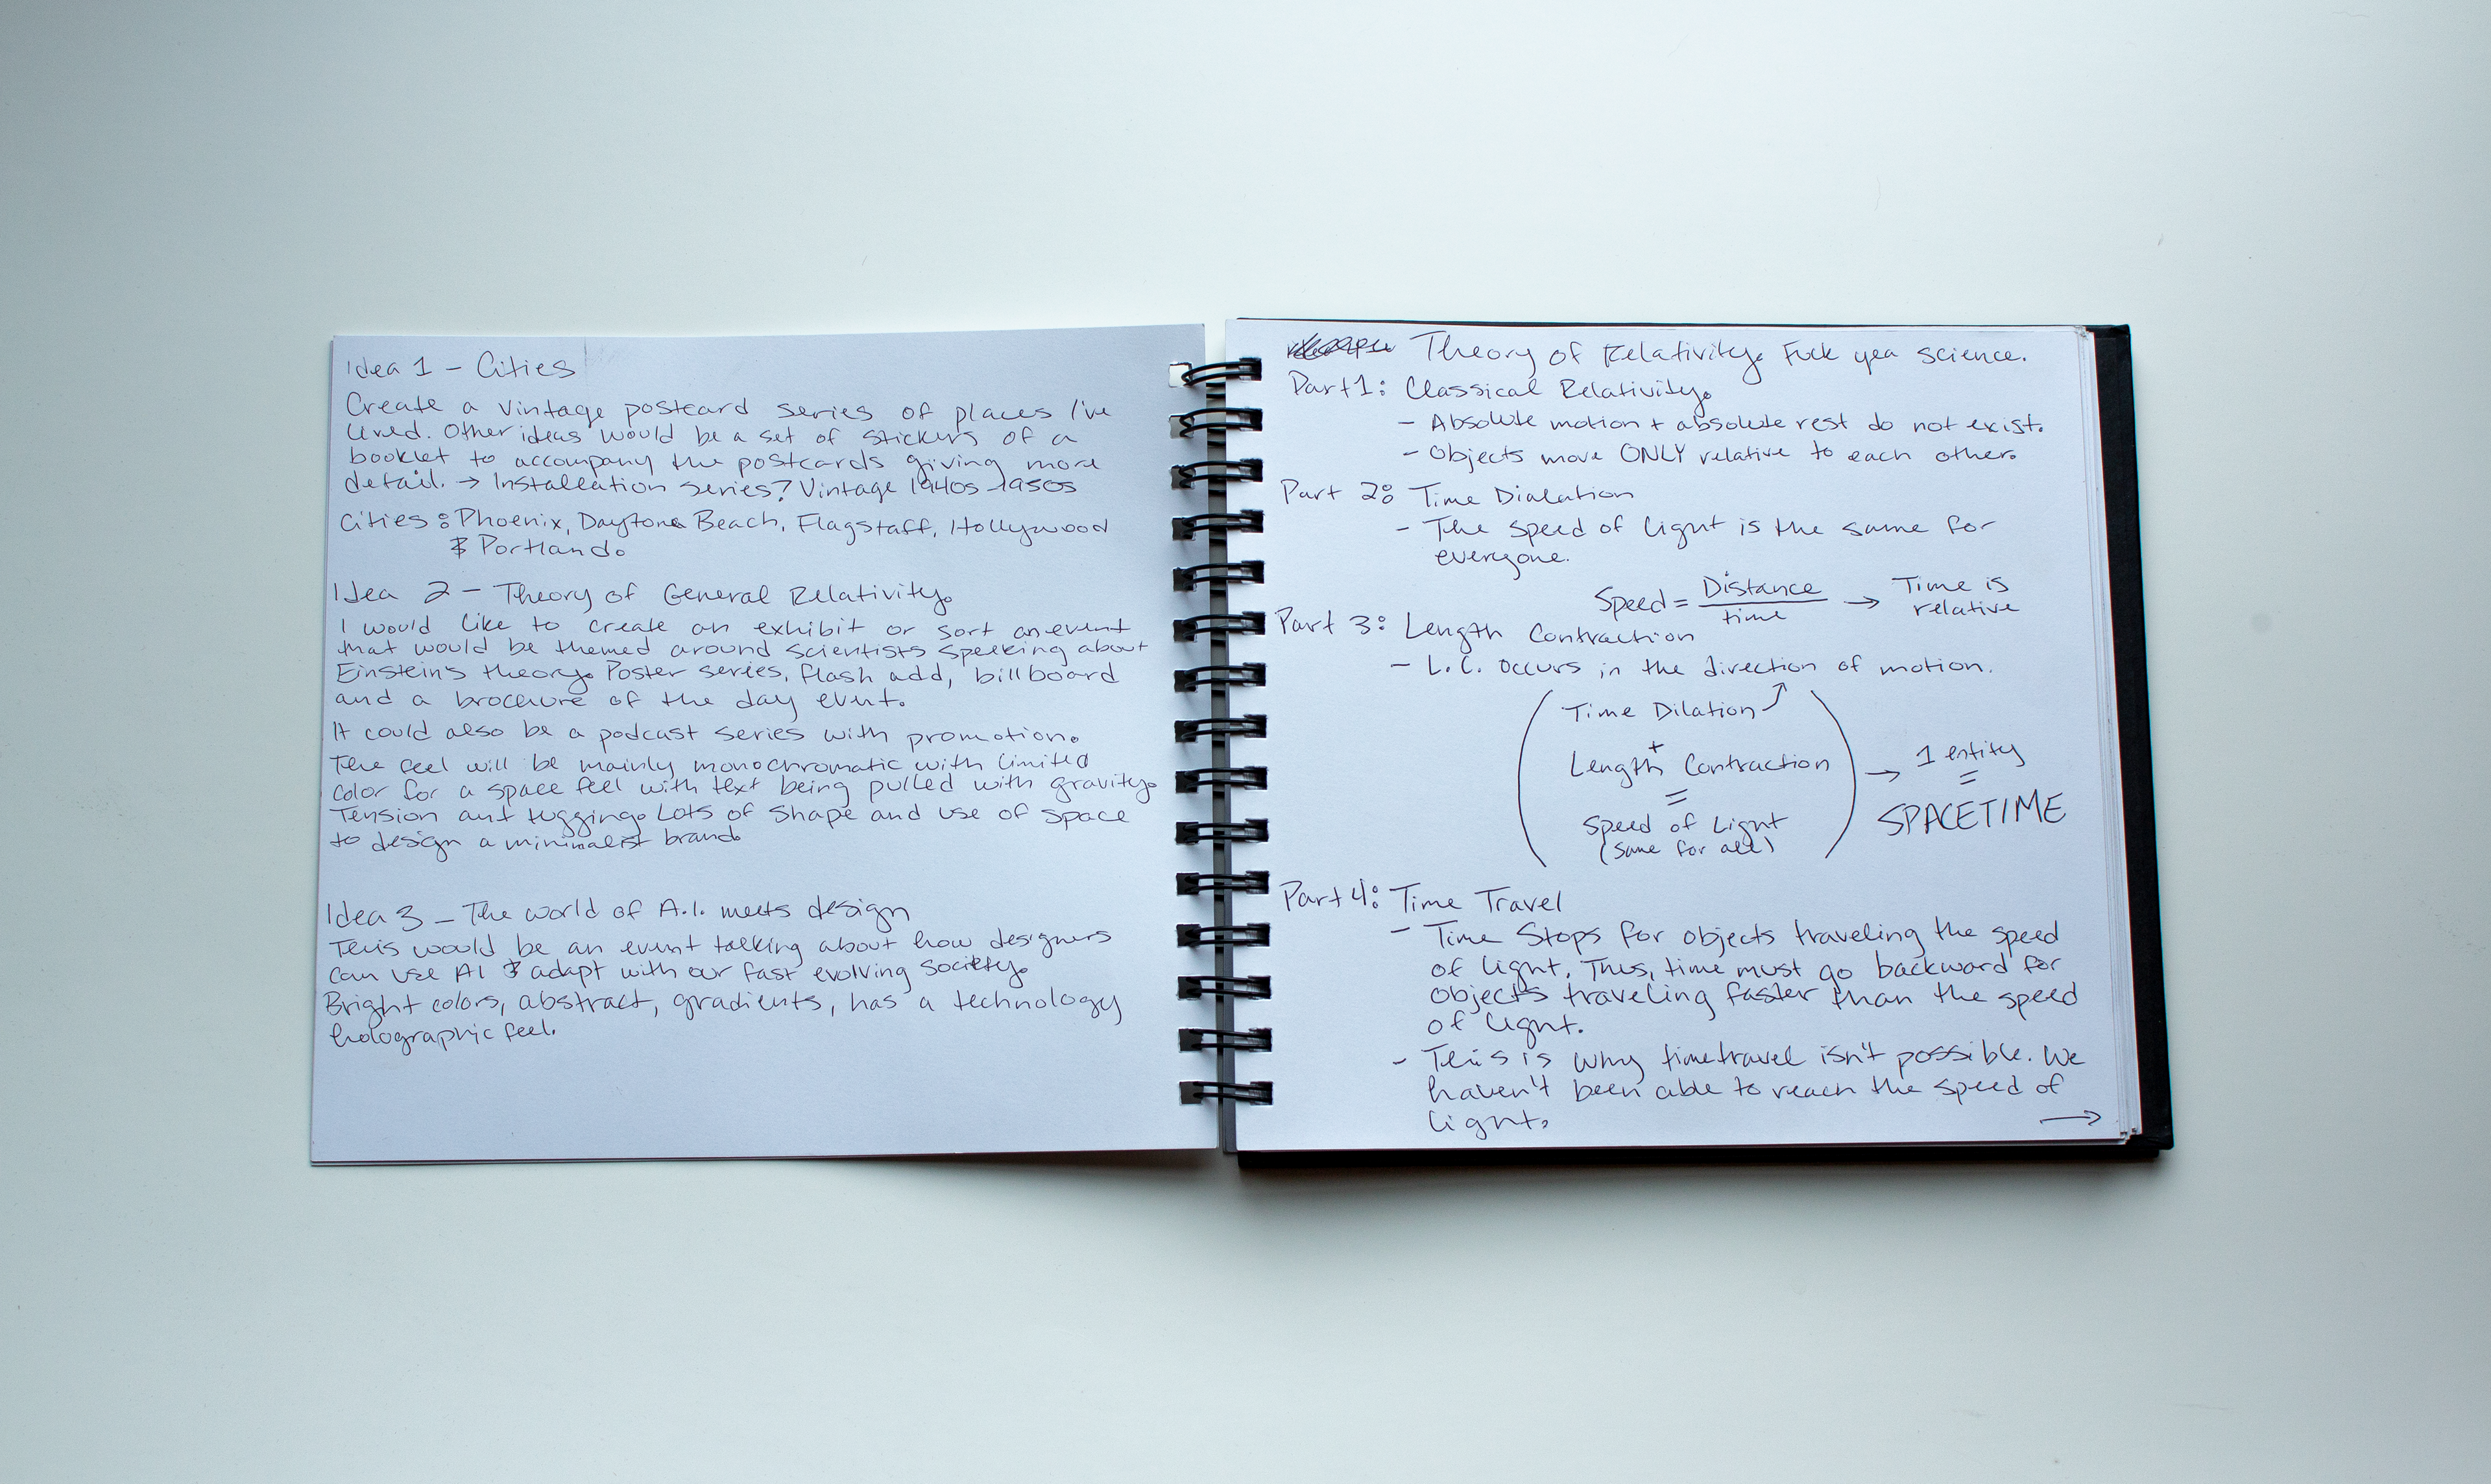 Idea 1 - Cities
Create a vintage postcard series of places I've
lived. Other ideas would be a set of stickers of a
booklet to accompany the postcards giving more
detail. → Installation series? Vintage 1940s-1950s
Cities: Phoenix, Daytona Beach, Flagstaff, Hollywood
& Portland.
Idea 2 - Theory of General Relativity.
I would like to create an exhibit or sort an event
that would be themed around scientists speaking about
Einstein's theory. Poster series, flash add, billboard
and a brochure of the day event.
It could also be a podcast series with promotion.
The feel will be mainly monochromatic with limited
color for a space feel with text being pulled with gravity.
Tension and tugging. Lots of shape and use of space
to design a minimalist brand.
Idea 3 - The world of A.I. meets design
This would be an event talking about how designers
can use AI & adapt with our fast evolving society.
Bright colors, abstract, gradients, has a technology
holographic feel.
Theory of Relativity. Fuck yea science.
Part 1: Classical Relativity.
- Absolute motion + absolute rest do not exist.
- Objects move ONLY relative to each other.
Part 2: Time Dialation
- The speed of light is the same for
everyone.
Speed = Distance / time → Time is relative
Part 3: Length Contraction
- L.C. occurs in the direction of motion.
Time Dilation
+
Length Contraction
=
Speed of Light
(same for all)
→ 1 entity
=
SPACETIME
Part 4: Time Travel
- Time stops for objects traveling the speed
of light. Thus, time must go backward for
objects traveling faster than the speed
of light.
- This is why timetravel isn't possible. We
haven't been able to reach the speed of
light.
→